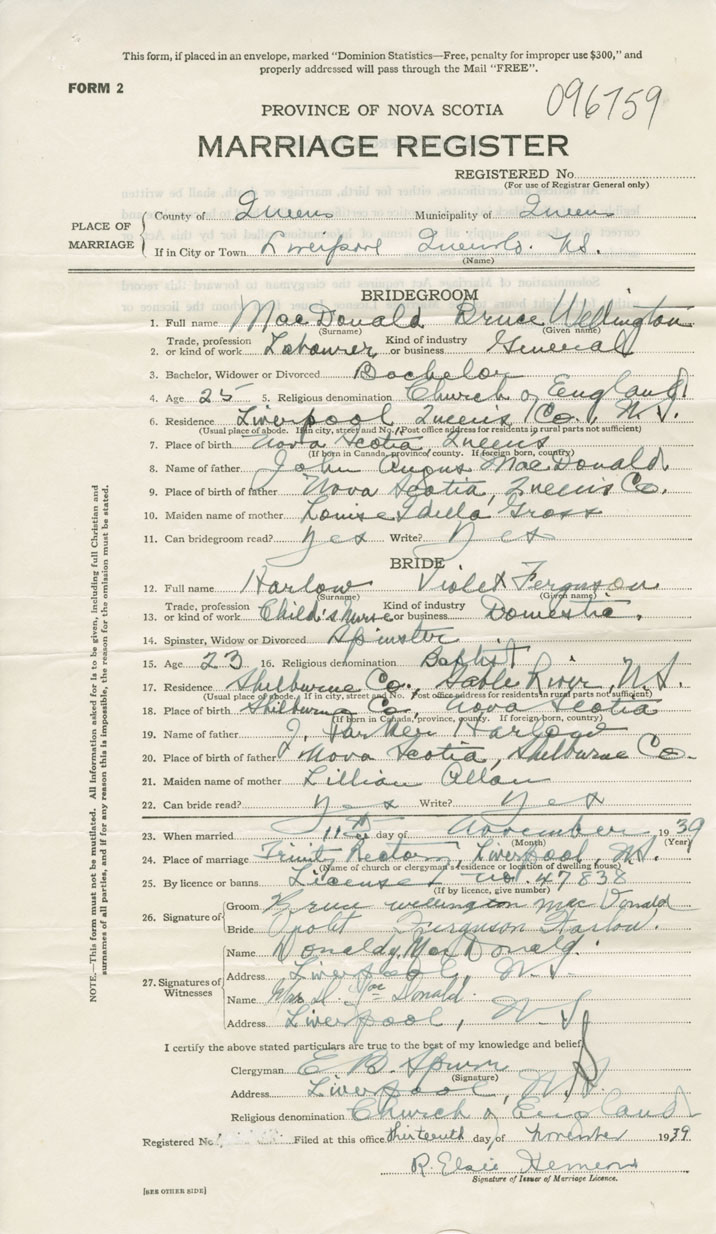 This form, if placed in an envelope, marked "Dominion Statistics—Free, penalty for improper use $300," and
properly addressed will pass through the Mail "FREE".
FORM 2
096759
PROVINCE OF NOVA SCOTIA
MARRIAGE REGISTER
REGISTERED No.
(For use of Registrar General only)
PLACE OF MARRIAGE
County of Queens Municipality of Queens
If in City or Town Liverpool Queens Co. N.S.
(Name)
BRIDEGROOM
1. Full name MacDonald Bruce Wellington
(Surname) (Given name)
2. Trade, profession or kind of work Labourer Kind of industry or business General
3. Bachelor, Widower or Divorced Bachelor
4. Age 25 5. Religious denomination Church of England
6. Residence Liverpool Queen's Co., N.S.
(Usual place of abode. If in city, street and No. Post office address for residents in rural parts not sufficient)
7. Place of birth Nova Scotia Queens
(If born in Canada, province, county. If foreign born, country)
8. Name of father John Angus MacDonald
9. Place of birth of father Nova Scotia, Queens Co.
10. Maiden name of mother Louise Gross
11. Can bridegroom read? Yes Write? Yes
BRIDE
12. Full name Harlow Violet Ferguson
(Surname) (Given name)
13. Trade, profession or kind of work Child's nurse Kind of industry or business Domestic.
14. Spinster, Widow or Divorced Spinster
15. Age 23 16. Religious denomination Baptist
17. Residence Shelburne Co., Sable River, N.S.
(Usual place of abode. If in city, street and No. Post office address for residents in rural parts not sufficient)
18. Place of birth Shelburne Co., Nova Scotia
(If born in Canada, province, county. If foreign-born, country)
19. Name of father J. Parker Harlow
20. Place of birth of father Nova Scotia, Shelburne Co.
21. Maiden name of mother Lillian Allan
22. Can bride read? Yes Write? Yes
23. When married 11th day of November 1939
(Month) (Year)
24. Place of marriage Trinity Rectory, Liverpool, N.S.
(Name of church or clergyman's residence or location of dwelling house)
25. By licence or banns License no. 47838
(If by licence, give number)
26. Signature of
Groom Bruce Wellington MacDonald
Bride Violet Ferguson Harlow.
27. Signatures of Witnesses
Name Donald MacDonald.
Address Liverpool, N.S.
Name Mrs. D. MacDonald.
Address Liverpool, N.S.
I certify the above stated particulars are true to the best of my knowledge and belief.
Clergyman E B. Spurr
(Signature)
Address Liverpool, N.S.
Religious denomination Church of England
Registered No. Filed at this office thirteenth day of November 1939
R. Elsie
Signature of Issuer of Marriage Licence.
[SEE OTHER SIDE]
NOTE.—This form must not be mutilated. All information asked for is to be given, including full Christian and
surnames of all parties, and if for any reason this is impossible, the reason for the omission must be stated.